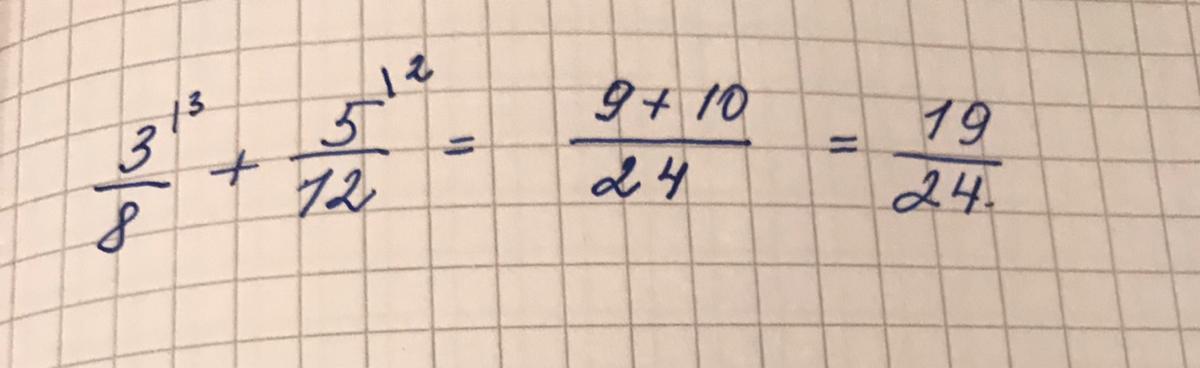 3/8 \3 + 5/12 \2 = (9 + 10)/24 = 19/24.